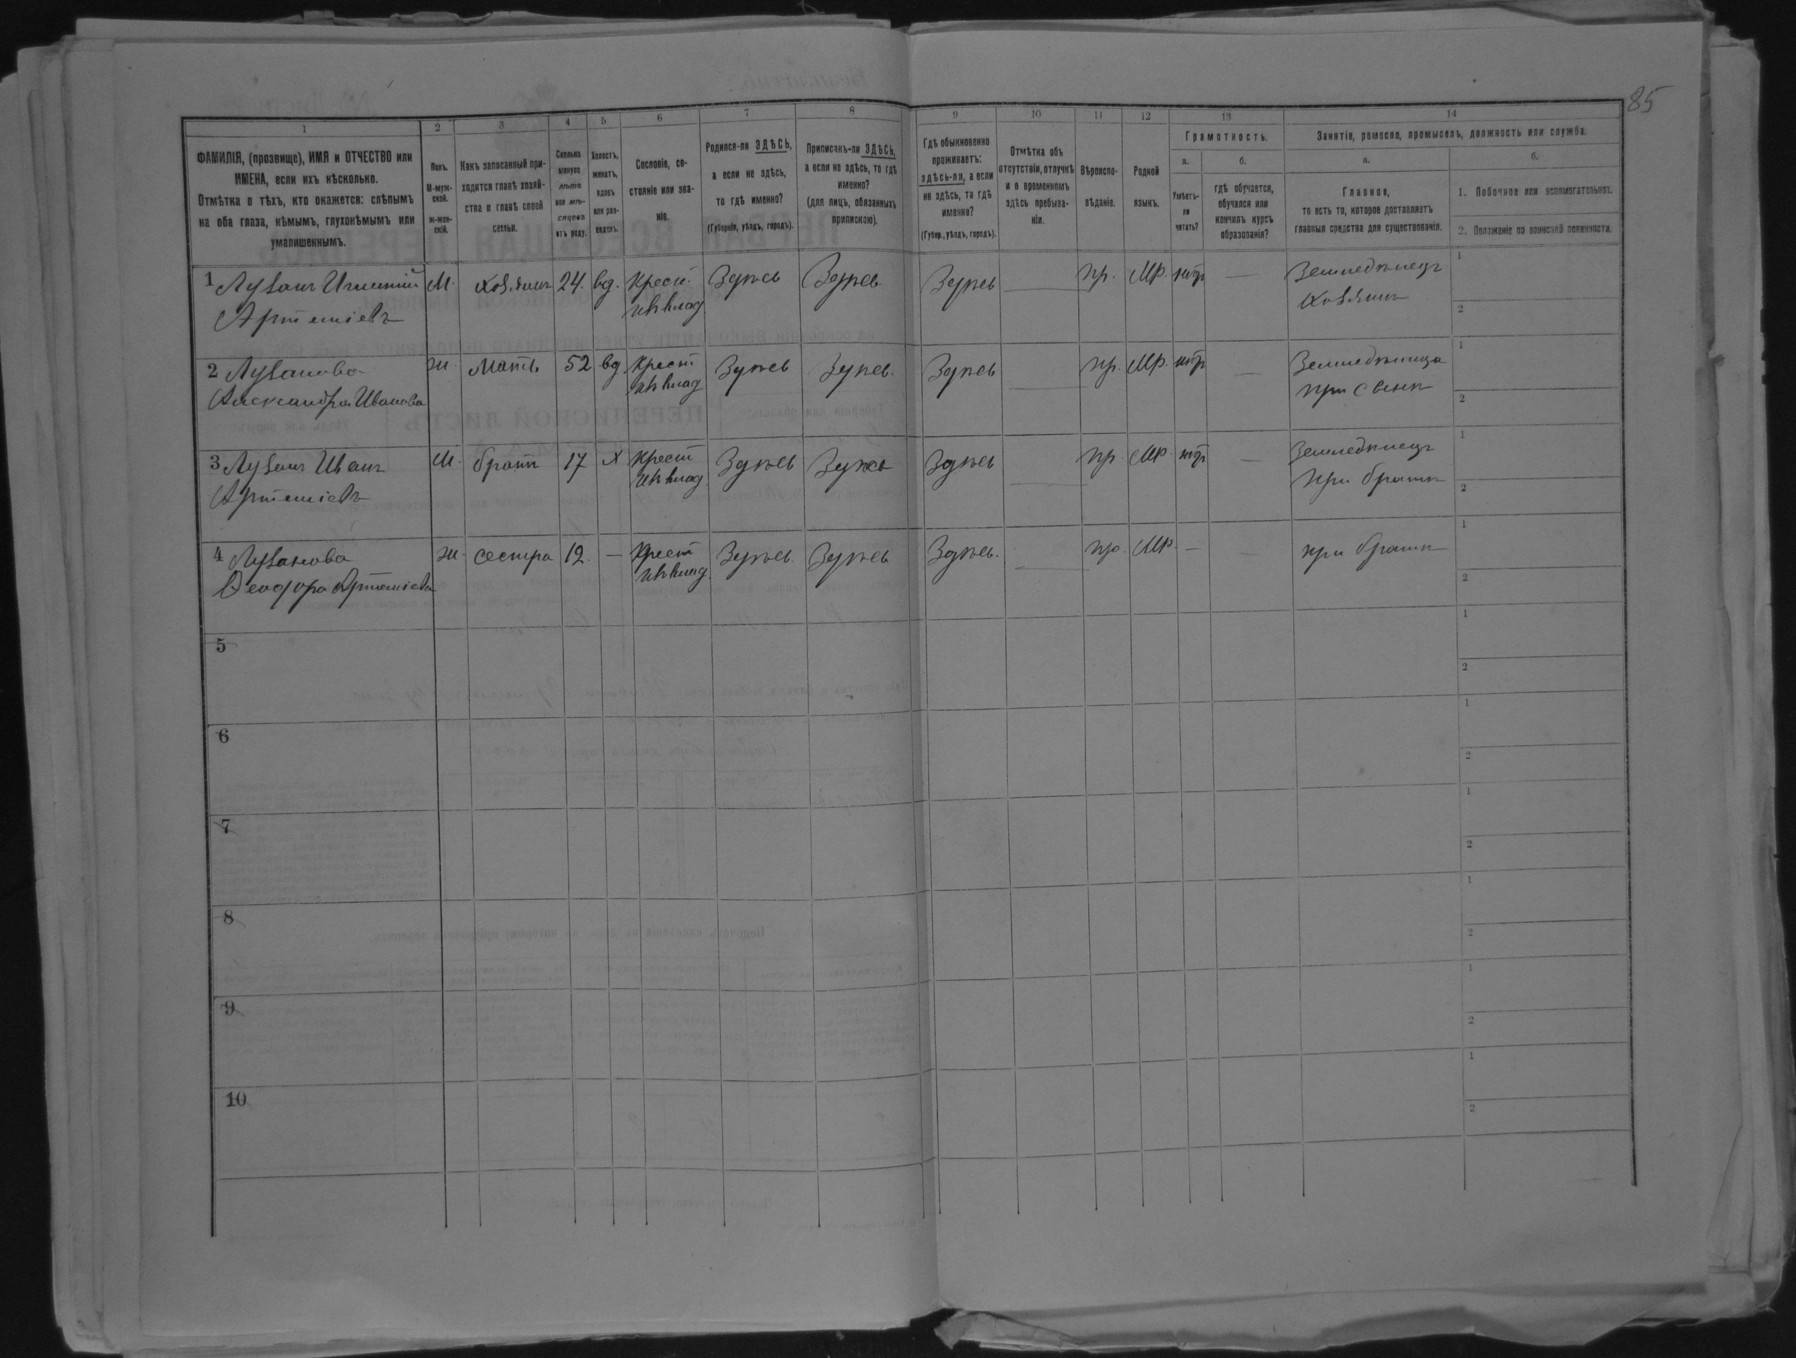 85
1 2 3 4 5 6 7 8 9 10 11 12 13 14
ФАМИЛІЯ, (прозвище), ИМЯ и ОТЧЕСТВО или
ИМЕНА, если ихъ нѣсколько.
Отмѣтка о тѣхъ, кто окажется: слѣпымъ
на оба глаза, нѣмымъ, глухонѣмымъ или
умалишеннымъ.
Полъ.
М-муж-
ской.
ж-жен-
скій.
Какъ записанный при-
ходится главѣ хозяй-
ства и главѣ своей
семьи.
Сколько
минуло
лѣтъ
или мѣ-
сяцевъ
отъ роду.
Холостъ,
женатъ,
вдовъ
или раз-
веденъ.
Сословіе, со-
стояніе или зва-
ніе.
Родился-ли ЗДѢСЬ,
а если не здѣсь,
то гдѣ именно?
(Губернія, уѣздъ, городъ).
Приписанъ-ли ЗДѢСЬ,
а если не здѣсь, то гдѣ
именно?
(для лицъ, обязанныхъ
припискою).
Гдѣ обыкновенно
проживаетъ:
здѣсь-ли, а если
не здѣсь, то гдѣ
именно?
(Губер., уѣздъ, городъ).
Отмѣтка объ
отсутствіи, отлучкѣ
и о временномъ
здѣсь пребыва-
ніи.
Вѣроиспо-
вѣданіе.
Родной
языкъ.
Грамотность.
а.
Умѣетъ-
ли
читать?
б.
гдѣ обучается,
обучался или
кончилъ курсъ
образованія?
Занятіе, ремесло, промыселъ, должность или служба.
а.
Главное,
то есть то, которое доставляетъ
главныя средства для существованія.
б.
1. Побочное или вспомогательное.
2. Положеніе по воинской повинности.
1 Лузанъ Игнатій М. хозяинъ 24. вд. Крест. Здѣсь Здѣсь Здѣсь — пр. МР. нѣтъ — Земледѣлецъ 1
Артеміевъ хозяинъ 2
2 Лузанова ж. мать 52 вд. Крест Здѣсь Здѣсь. Здѣсь — пр. МР. нѣтъ — Земледѣлица 1
Александра Иванова при сынѣ 2
3 Лузанъ Иванъ М. братъ 17 Х Крест Здѣсь Здѣсь Здѣсь — пр. МР. нѣтъ — Земледѣлецъ 1
Артеміевъ при братѣ 2
4 Лузанова ж. сестра 12. — Крест Здѣсь. Здѣсь Здѣсь. — пр. МР. — — при братѣ 1
Ѳеодора Артеміева 2
5 1
2
6 1
2
7 1
2
8 1
2
9 1
2
10 1
2